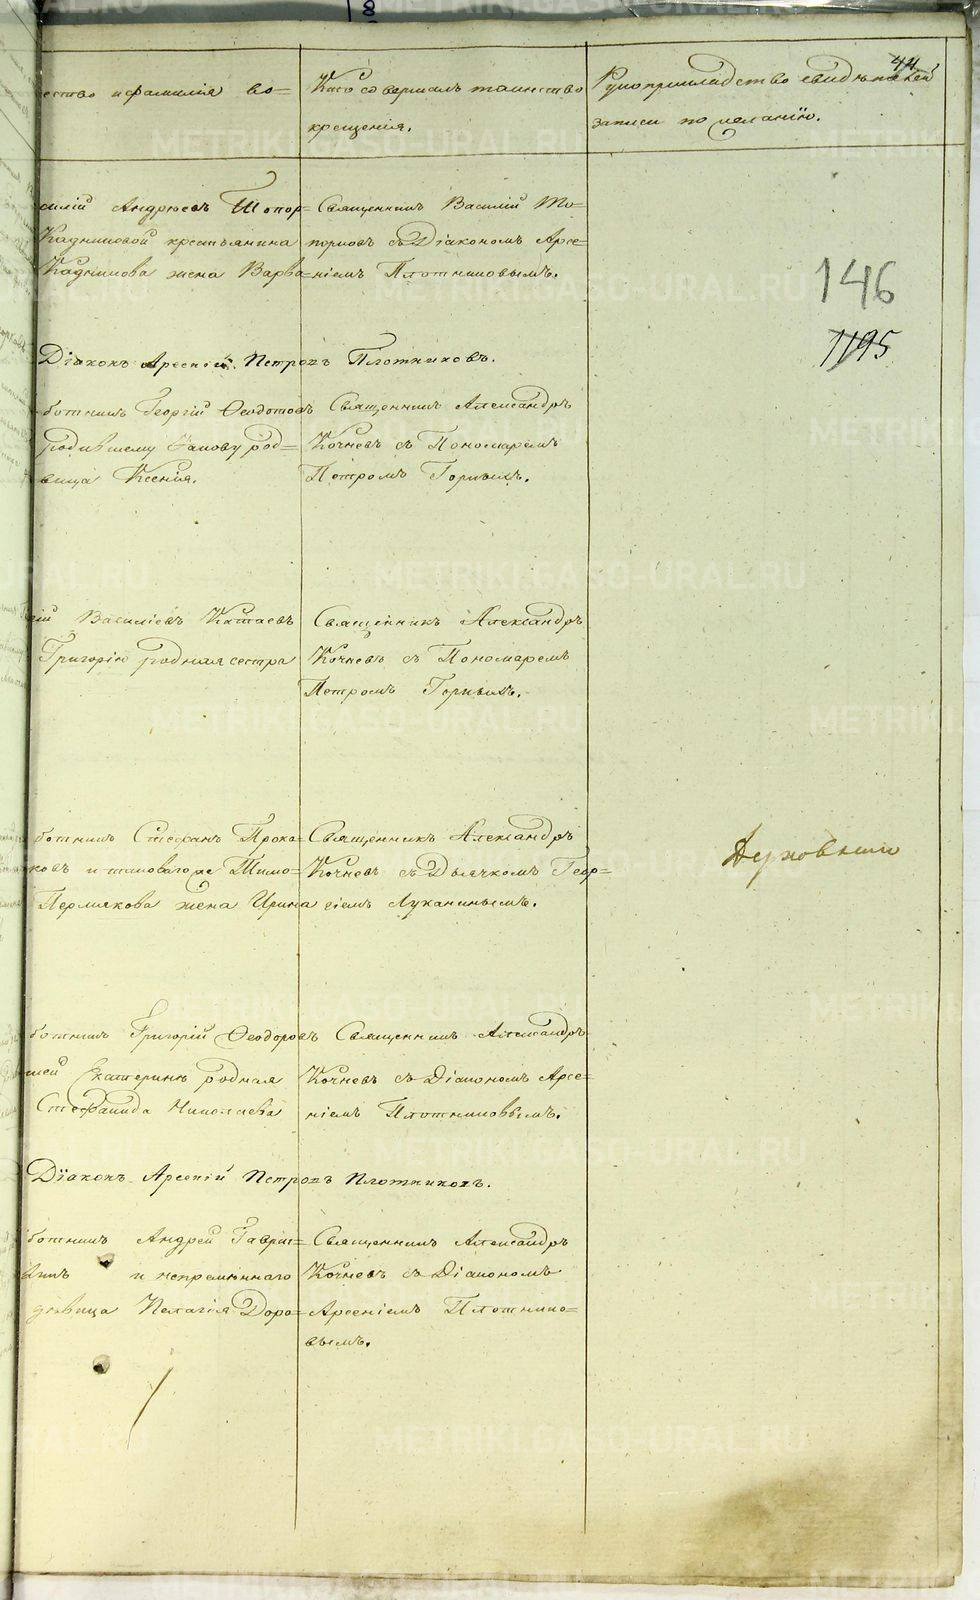 18
44
ество и фамилія во=
Кто совершалъ таинство
крещенія.
Рукоприкладство свидѣтелей
записи по желанію.
силій Андреевъ Топор=
Кадниковой крестьянина
Кадникова жена Варва=
Священникъ Василій То=
порковъ съ Діакономъ Арсе=
ніемъ Плотниковымъ.
146
1195
Діаконъ Арсеній Петровъ Плотниковъ.
ботникъ Георгій Ѳеодотовъ
родившему род=
вица Ксенія.
Священникъ Александръ
Кочневъ съ Пономаремъ
Петромъ Горныхъ.
гій Василіевъ Катаевъ
Григорію родная сестра
Священникъ Александръ
Кочневъ съ Пономаремъ
Петромъ Горныхъ.
ботникъ Стефанъ Проко=
ковъ и таковаго же Тимо=
Пермякова жена Ирина
Священникъ Александръ
Кочневъ съ Дьячкомъ Геор=
гіемъ Луканинымъ.
Духовныи
ботникъ Григорій Ѳеодоровъ
шей Екатерины родная
Стефанида Николаева
Священникъ Александръ
Кочневъ съ Діакономъ Арсе=
ніемъ Плотниковымъ.
Діаконъ Арсеній Петровъ Плотниковъ.
ботникъ Андрей Гаврі=
и непремѣннаго
дѣвица Пелагія Доро=
Священникъ Александръ
Кочневъ съ Діакономъ
Арсеніемъ Плотнико=
вымъ.
METRIKI.GASO-URAL.RU